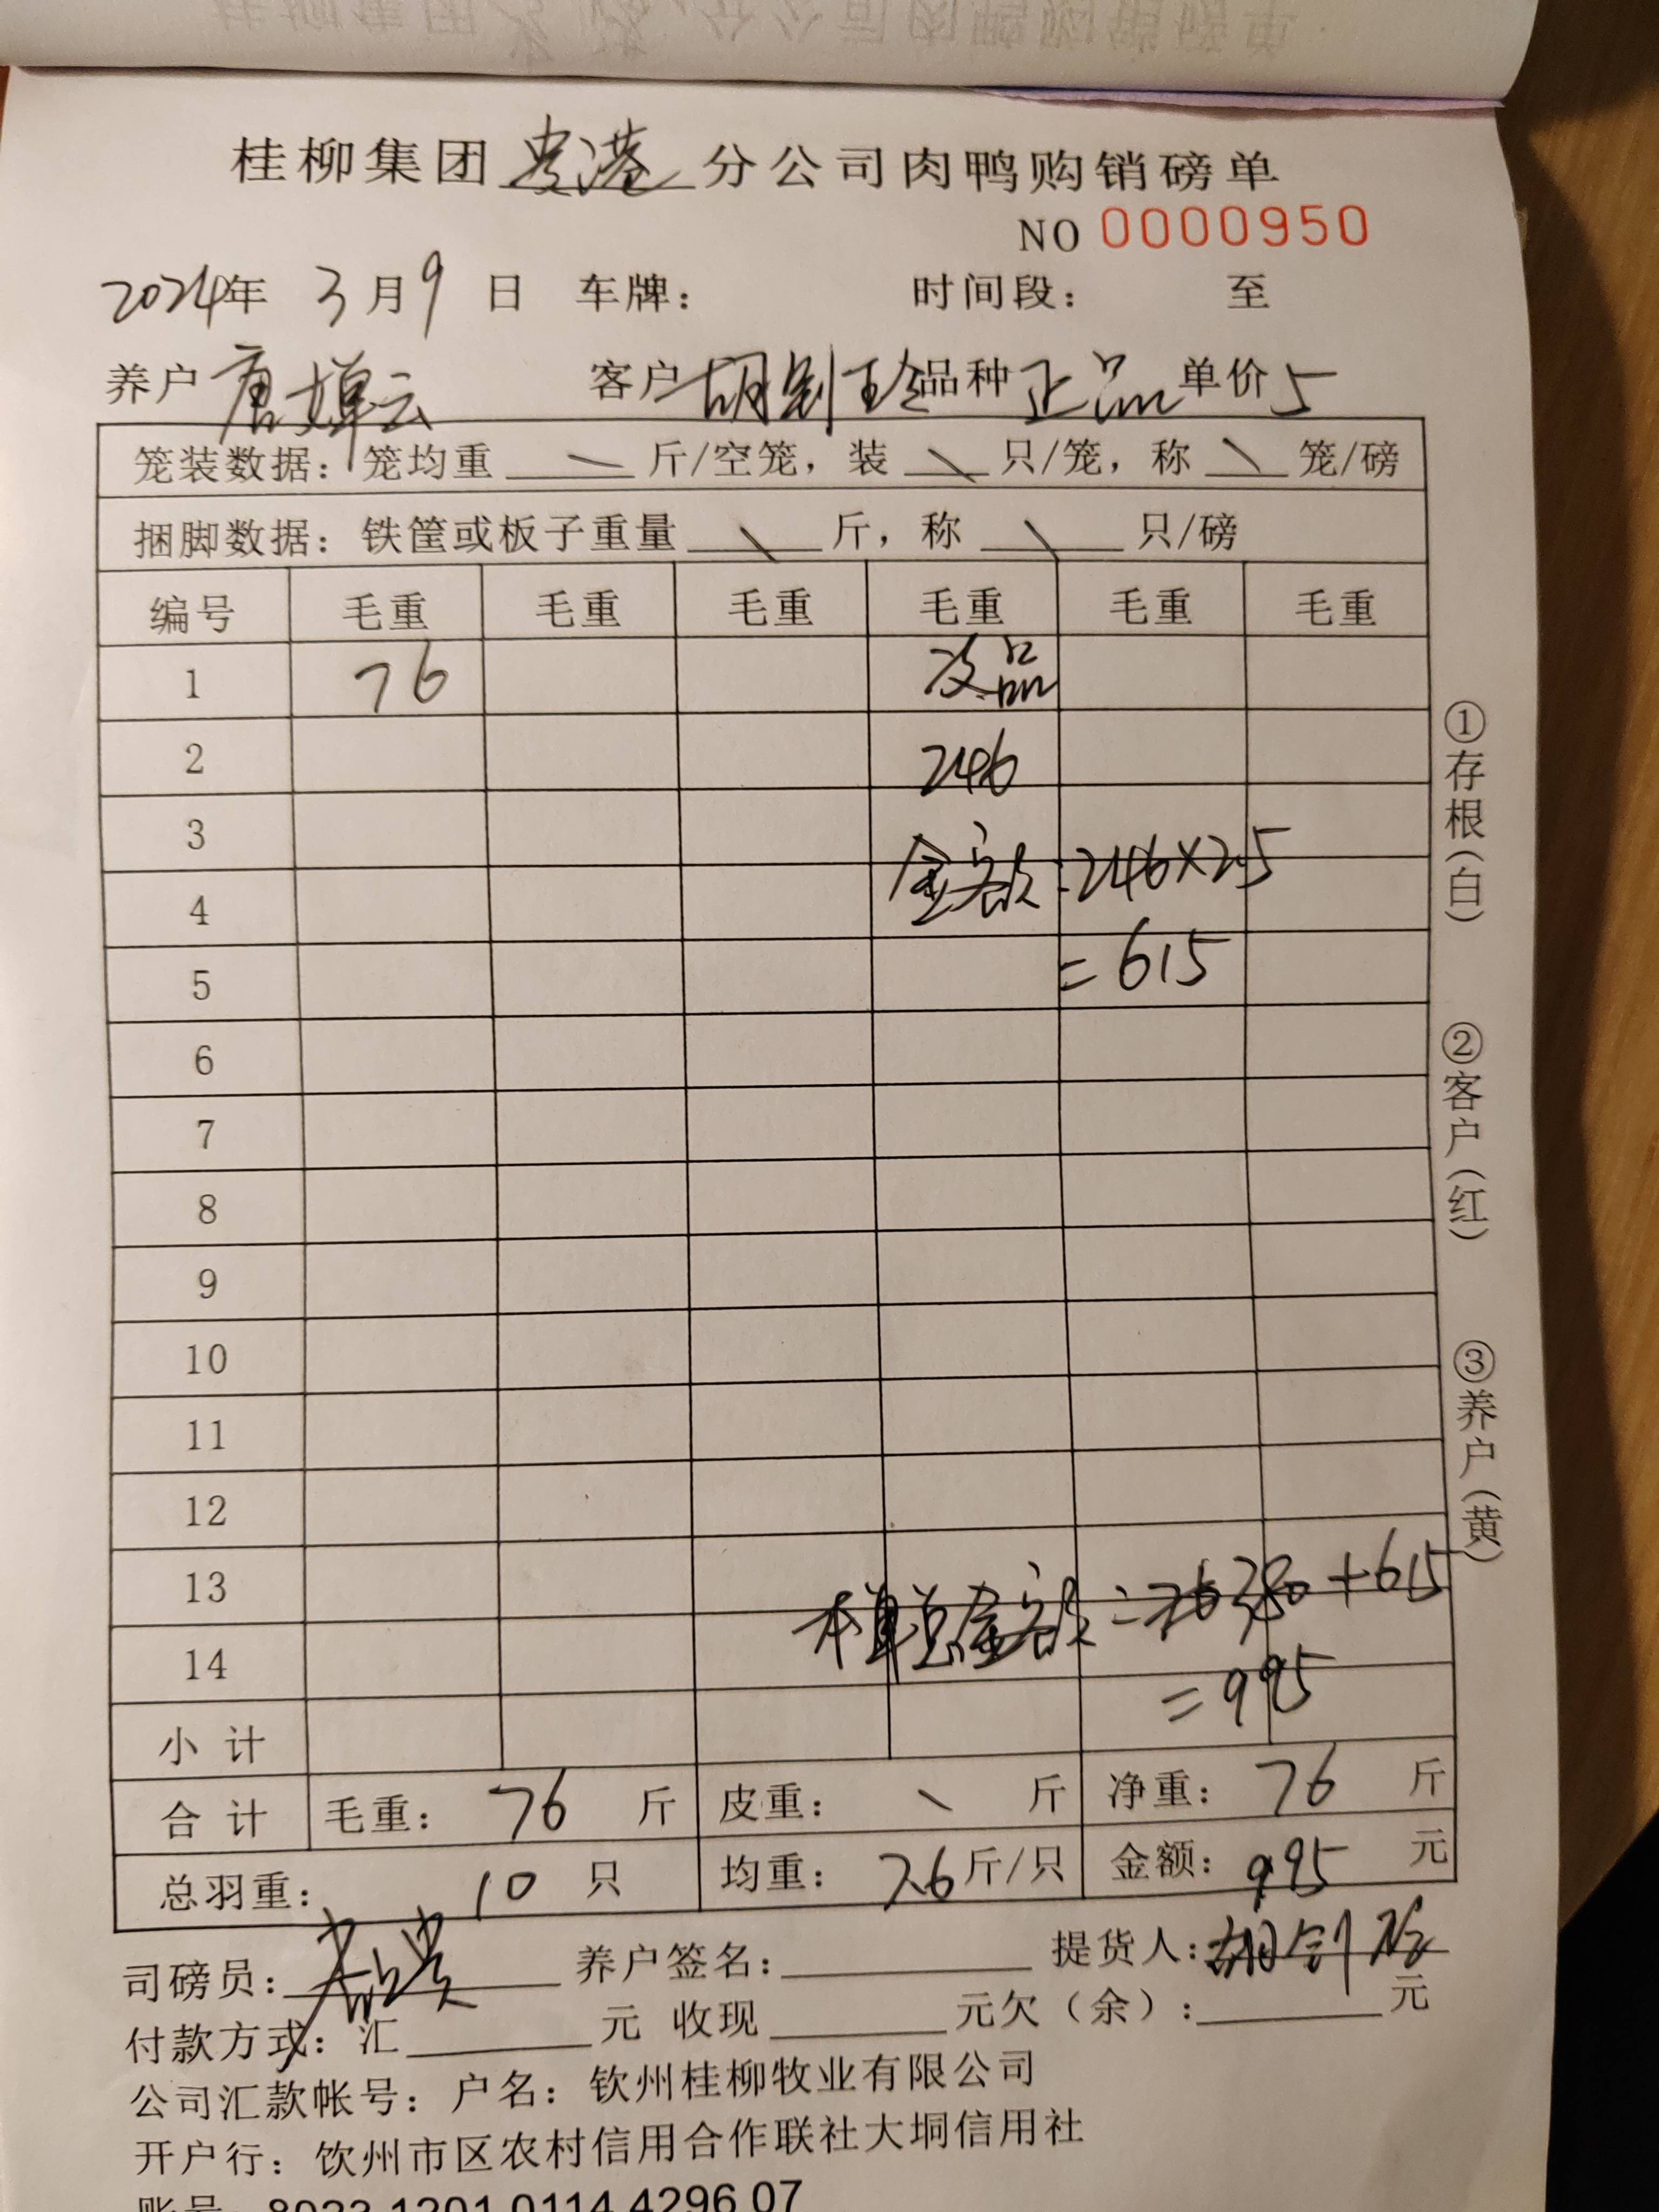 桂柳集团贵港分公司肉鸭购销磅单
NO 0000950
2024年 3月9日 车牌： 时间段： 至
养户 唐婵云 客户 胡剑珍 品种 正品 单价 5
笼装数据：笼均重 \ 斤/空笼，装 \ 只/笼，称 \ 笼/磅
捆脚数据：铁筐或板子重量 \ 斤，称 \ 只/磅
编号 毛重 毛重 毛重 毛重 毛重 毛重
1 76 次品
2 246
3
4 金额：246×2.5
5 =615
6
7
8
9
10
11
12
13 本单总金额=380+615
14 =995
小计
合计 毛重：76 斤 皮重：\ 斤 净重：76 斤
总羽重：10 只 均重：7.6 斤/只 金额：995 元
司磅员： 养户签名： 提货人：胡剑珍
付款方式：汇 元 收现 元欠（余）： 元
公司汇款帐号：户名：钦州桂柳牧业有限公司
开户行：饮州市区农村信用合作联社大垌信用社
账号：8023 1201 0114 4296 07
①存根（白）
②客户（红）
③养户（黄）